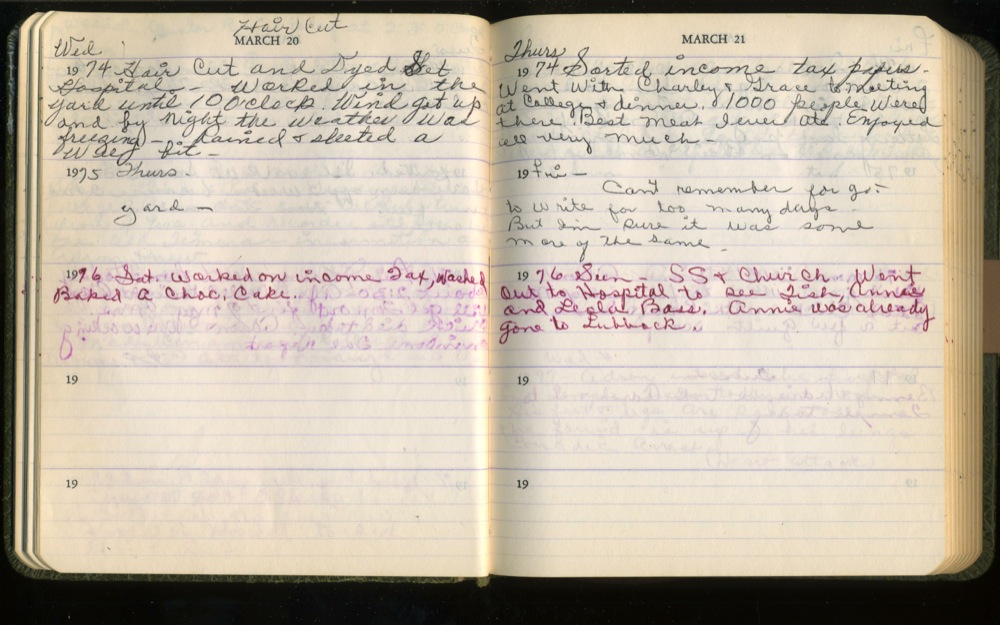 Hair Cut
MARCH 20
Wed
1974 Hair Cut and Dyed Set
Hospital - Worked in the
yard until 10 O'clock. Wind got up
and by Night the weather was
freezing - Rained & sleeted a
Way bit -
1975 Thurs -
yard -
1976 Sat. Worked on income Tax, washed
Baked A Choc. Cake.
19
19
MARCH 21
Thurs
1974 Sorted income tax papers.
Went With Charley & Grace to meeting
at College & dinner. 81000 people Were
there. Best meat I ever ate. Enjoyed
all very much -
19 Fri -
Can't remember for got
to write for too many days -
But I'm sure it was some
more of the same -
1976 Sun - SS & Church. Went
Out to Hospital to see Tish, Annie
and Leola Bass. Annie was already
gone to Lubbock.
19
19